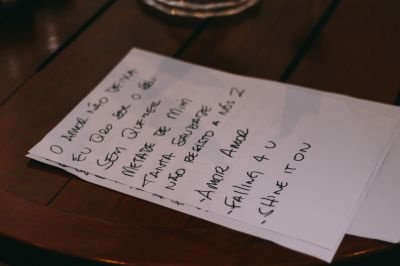 O AMOR NÃO DEIXA
EU QRO SER O SEU
SEM QUERER
METADE DE MIM
TANTA SAUDADE
NÃO RESISTO A NÓS 2
- AMOR AMOR
- FALLING 4 U
- SHINE IT ON